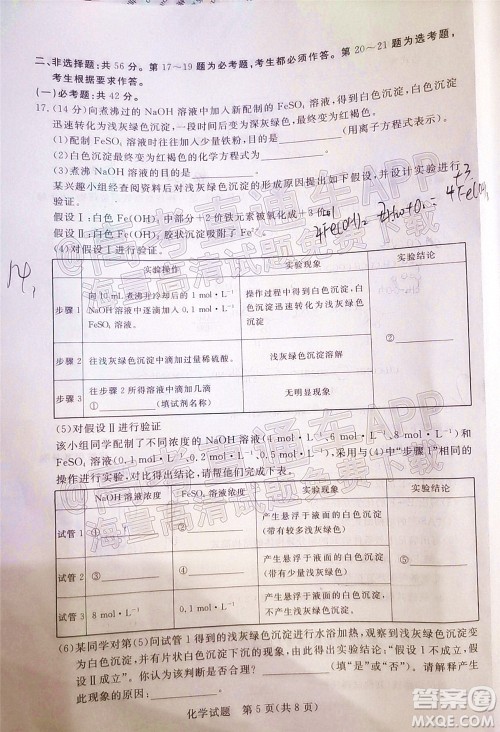 二、非选择题:共 56 分。第 17～19 题为必考题,考生都必须作答。第 20～21 题为选考题,
考生根据要求作答。
(一)必考题:共 42 分。
17.(14 分)向煮沸过的 NaOH 溶液中加入新配制的 FeSO₄ 溶液,得到白色沉淀,白色沉淀
迅速转化为浅灰绿色沉淀,一段时间后变为灰绿色,最终变为红褐色。
(1)配制 FeSO₄ 溶液时常加入少量铁粉,目的是
(用离子方程式表示)。
(2)白色沉淀最终变为红褐色的化学方程式为
(3)煮沸 NaOH 溶液的作用是
某兴趣小组经查阅资料后对浅灰绿色沉淀的形成原因提出如下假设,并设计实验进行
验证。
假设Ⅰ:白色 Fe(OH)₂ 中部分+2 价铁元素被氧化成+3 价
假设Ⅱ:白色 Fe(OH)₂ 胶状沉淀吸附了 Fe²⁺
(4)对假设Ⅰ进行验证。
实验操作 实验现象 实验结论
步骤 1 向 10 mL 煮沸并冷却后的 1 mol·L⁻¹ NaOH 溶液中逐滴加入 0.1 mol·L⁻¹ FeSO₄ 溶液 操作过程中得到白色沉淀,白色沉淀变为浅灰绿色沉淀 ②
步骤 2 往浅灰绿色沉淀中滴加过量稀硫酸。 浅灰绿色沉淀溶解
步骤 3 往步骤 2 所得溶液中滴加几滴 ① (填试剂名称) 无明显现象
(5)对假设Ⅱ进行验证
该小组同学配制了不同浓度的 NaOH 溶液(4 mol·L⁻¹、6 mol·L⁻¹、8 mol·L⁻¹)和
操作进行实验,请帮他们完成下表。
NaOH 溶液浓度 FeSO₄ 溶液浓度 实验现象 实验结论
试管 1 ① ② 产生悬浮于液面的白色沉淀(带有较多浅灰绿色)
试管 2 ③ 产生悬浮于液面的白色沉淀(带有少量浅灰绿色)
试管 3 8 mol·L⁻¹ 0.1 mol·L⁻¹ 产生悬浮于液面的白色沉淀,不产生浅灰绿色沉淀。
(6)某同学对第(5)问试管 1 得到的浅灰绿色沉淀进行水浴加热,观察到浅灰绿色沉淀
变为白色沉淀,并有片状白色沉淀下沉。于是该同学得出“假
设Ⅱ成立”。你认为该判断是否合理?
(填“是”或“否”)。请解释产生
此现象的原因为
化学试题 第 5 页(共 8 页)
答案圈
MXQE.COM